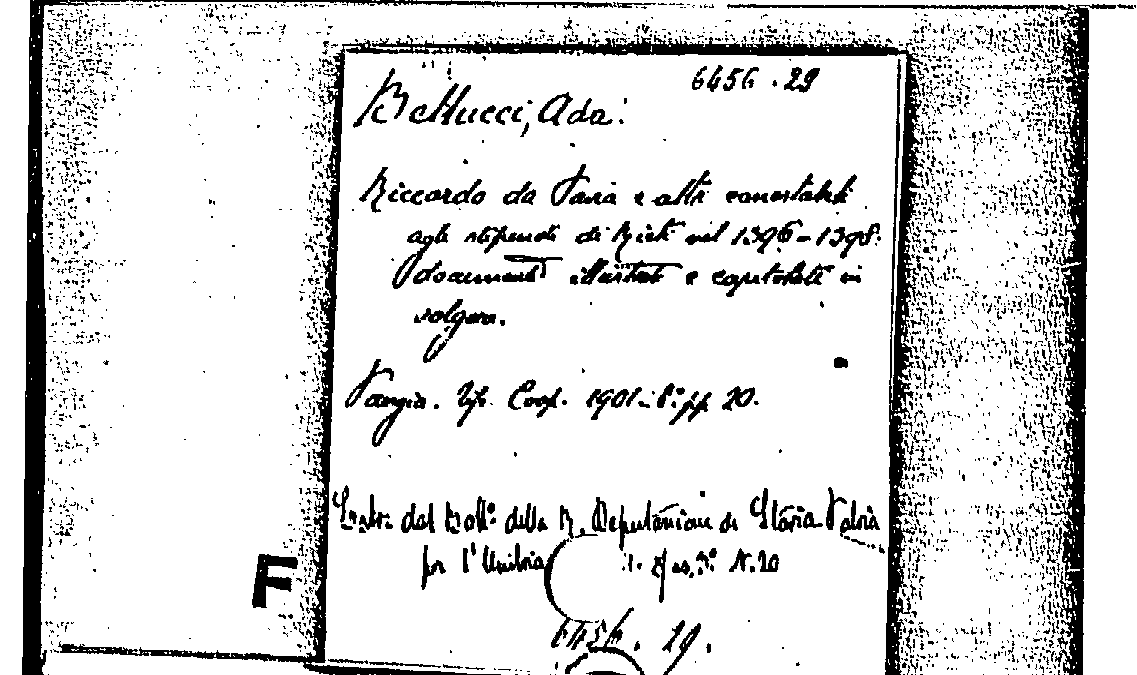 6456.29
Bellucci, Ada:
Riccardo da Pavia e altri conestabili
agli stipendi di Rieti nel 1396-1398:
documenti illustrati e capitolati in
volgare.
Perugia. Tip. Coop. 1901. 8.° pp 20.
Estr. dal Boll.° della R. Deputazione di Storia Patria
per l'Umbria Fas. 3.° N. 20
F
6456.29.